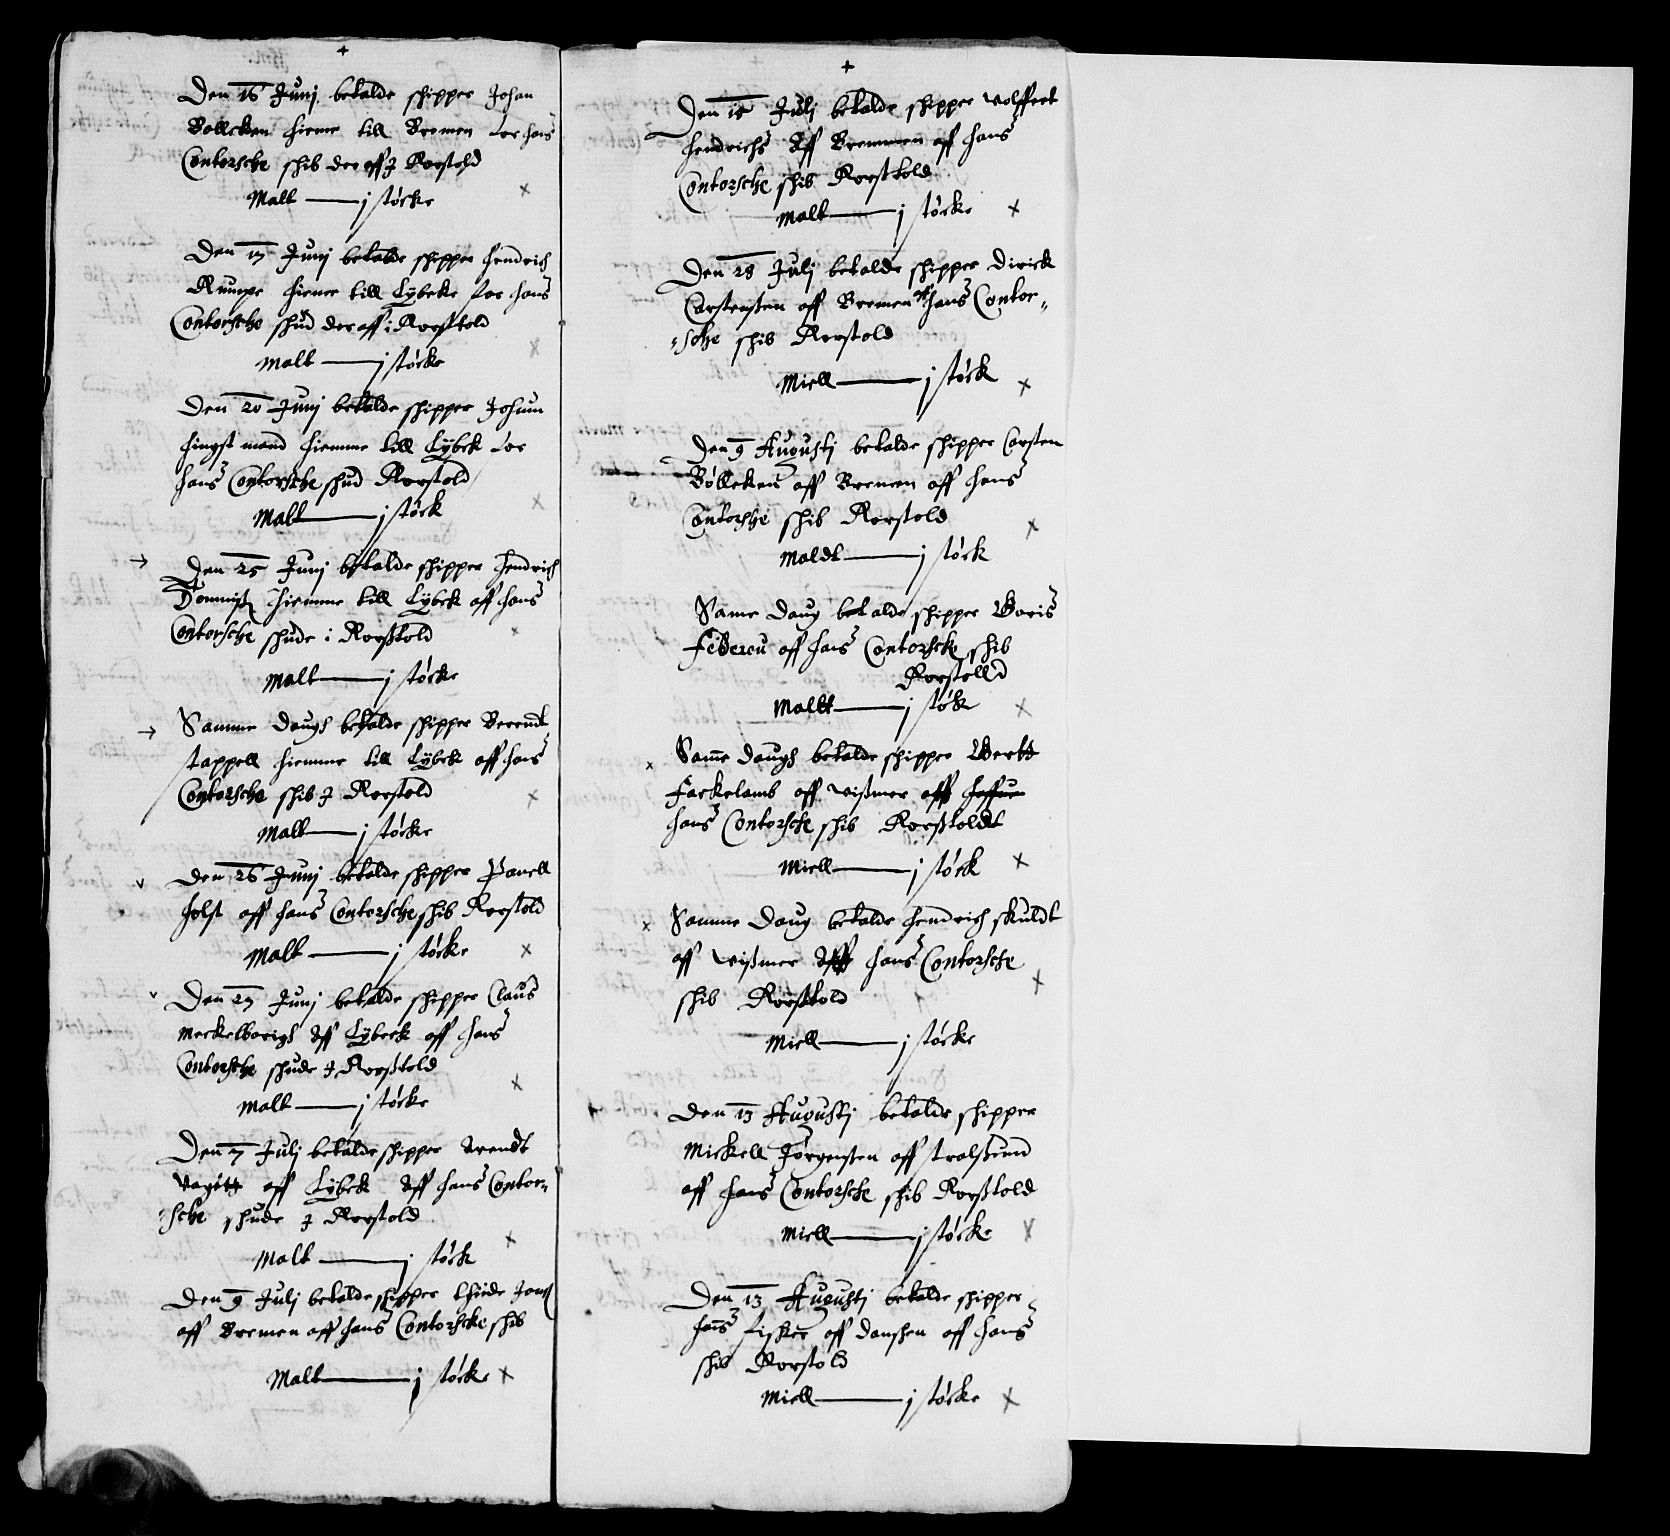 Den 16 Junj betalde schipper Johan
Bollcken hieme till Bremen for hans
Contorsche schib der aff J Rorstold
Malt — j støcke
Den 17 Junj betalde schipper Hendrich
Rumpe hieme till Lÿbeke for hans
Contorsche schud der aff i Rorsttold
Malt — j støcke
Den 20 Junj betalde schipper Johan
Hingstmand hiemme till Lÿbeck for
hans Contorsche schud Rorstold
Malt — j støck
Den 25 Junj betalde schipper Hendrich
hiemme till Lÿbeck aff hans
Contorsche schude i Rorsttold
Malt — j støcke
Samme Daugh betalde schipper Berendt
stappell hiemme till Lÿbeck aff hans
Contorsche schib J Rorstold
Malt — j støcke
Den 26 Junj betalde schipper Pavell
Holst aff hans Contorsche schib Rorstold
Malt — j støcke
Den 27 Junj betalde schipper Claus
Meckelborigh Aff Lÿbeck aff hans
Contorsche schude J Rorsttold
Malt — j støcke
Den 7 Julj betalde schipper Arendt
Vagitt aff Lÿbeck Aff hans Contor=
=sche schude J Rorstold
Malt — j støck
Den 9 Julj betalde schipper
aff Bremen aff hans Contorscke schib
Malt — j støcke
Den 18 Julj betalde schipper Wolffert
Hendrichs Aff Bremmen aff hans
Contorsche schib Rorsttold
Malt — j støcke
Den 28 Julj betalde schipper Dirick
Carstensten aff Bremen aff hans Contor=
=sche schib Rorstold
Miell — j støck
Den 9 Augustj betalde schipper Carsten
Bølleken aff Bremen aff hans
Contorsche schib Rorstold
Maldt — j støck
Same Daug betalde schipper Boris
aff hans Contorscke schib
Rorstolld
Maltt — j støk
Same daugh betalde schipper Gertt
Farkelamb aff Wißmer aff
hans Contorsche schib Rorsttoldt
Miell — j støck
Samme Daug betalde Hendrich skuldt
aff Wißmer Aff hans Contorsche
schib Rorsttold
Miell — j støcke
Den 13 Augustj betalde schipper
Mickell Jørgensten aff stralsund
aff hans Contorsche schib Rorsttold
Miell — j støcke
Den 13 Augustj betalde schipper
Hans Fischer aff Danschen aff hans
schib Rorstold
Miell — j støcke